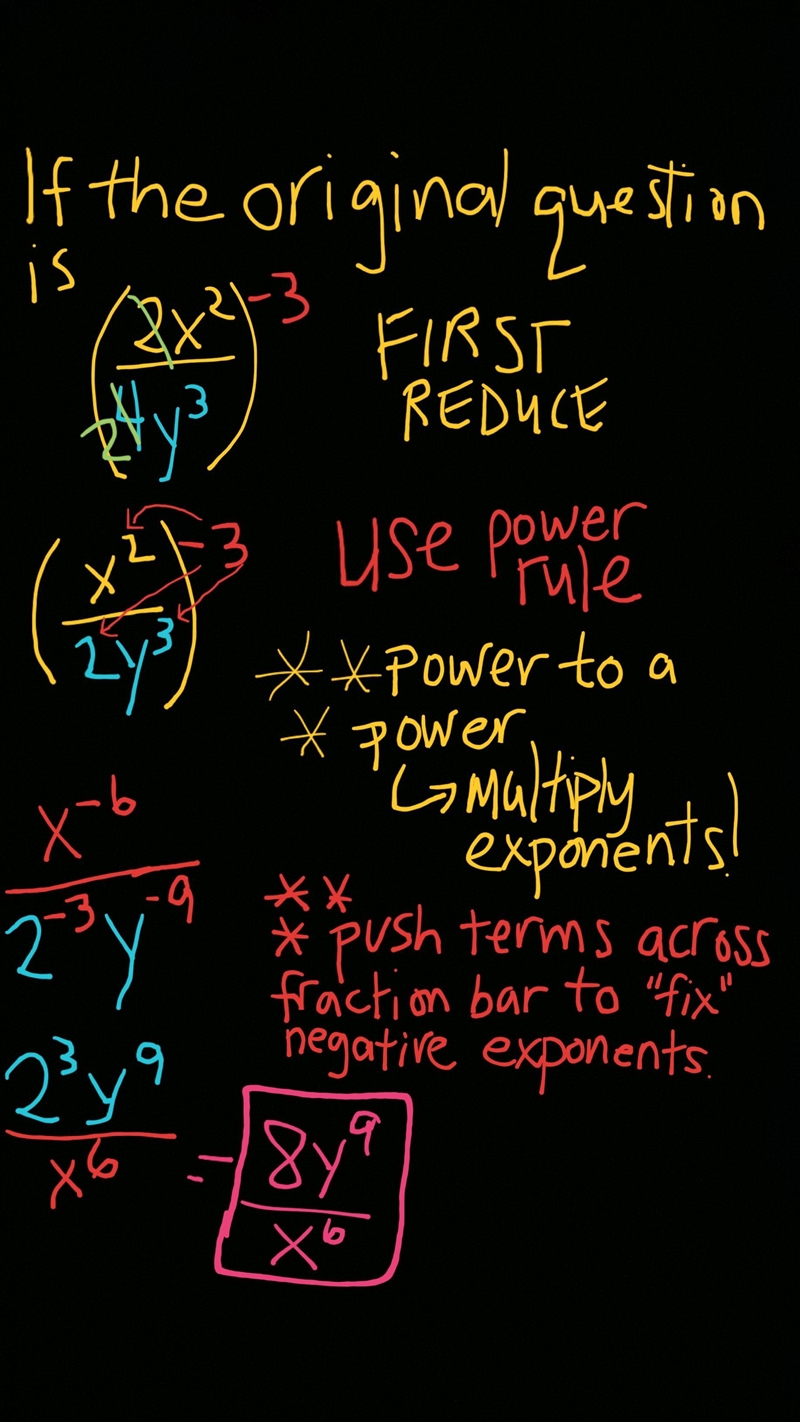 If the original question
is
(2x²/4y³)⁻³ 2
FIRST
REDUCE
(x²/2y³)⁻³
use power
rule
** power to a
* power
↳ Multiply
exponents!
x⁻⁶/2⁻³y⁻⁹
**
* push terms across
fraction bar to "fix"
negative exponents.
2³y⁹/x⁶ = 8y⁹/x⁶